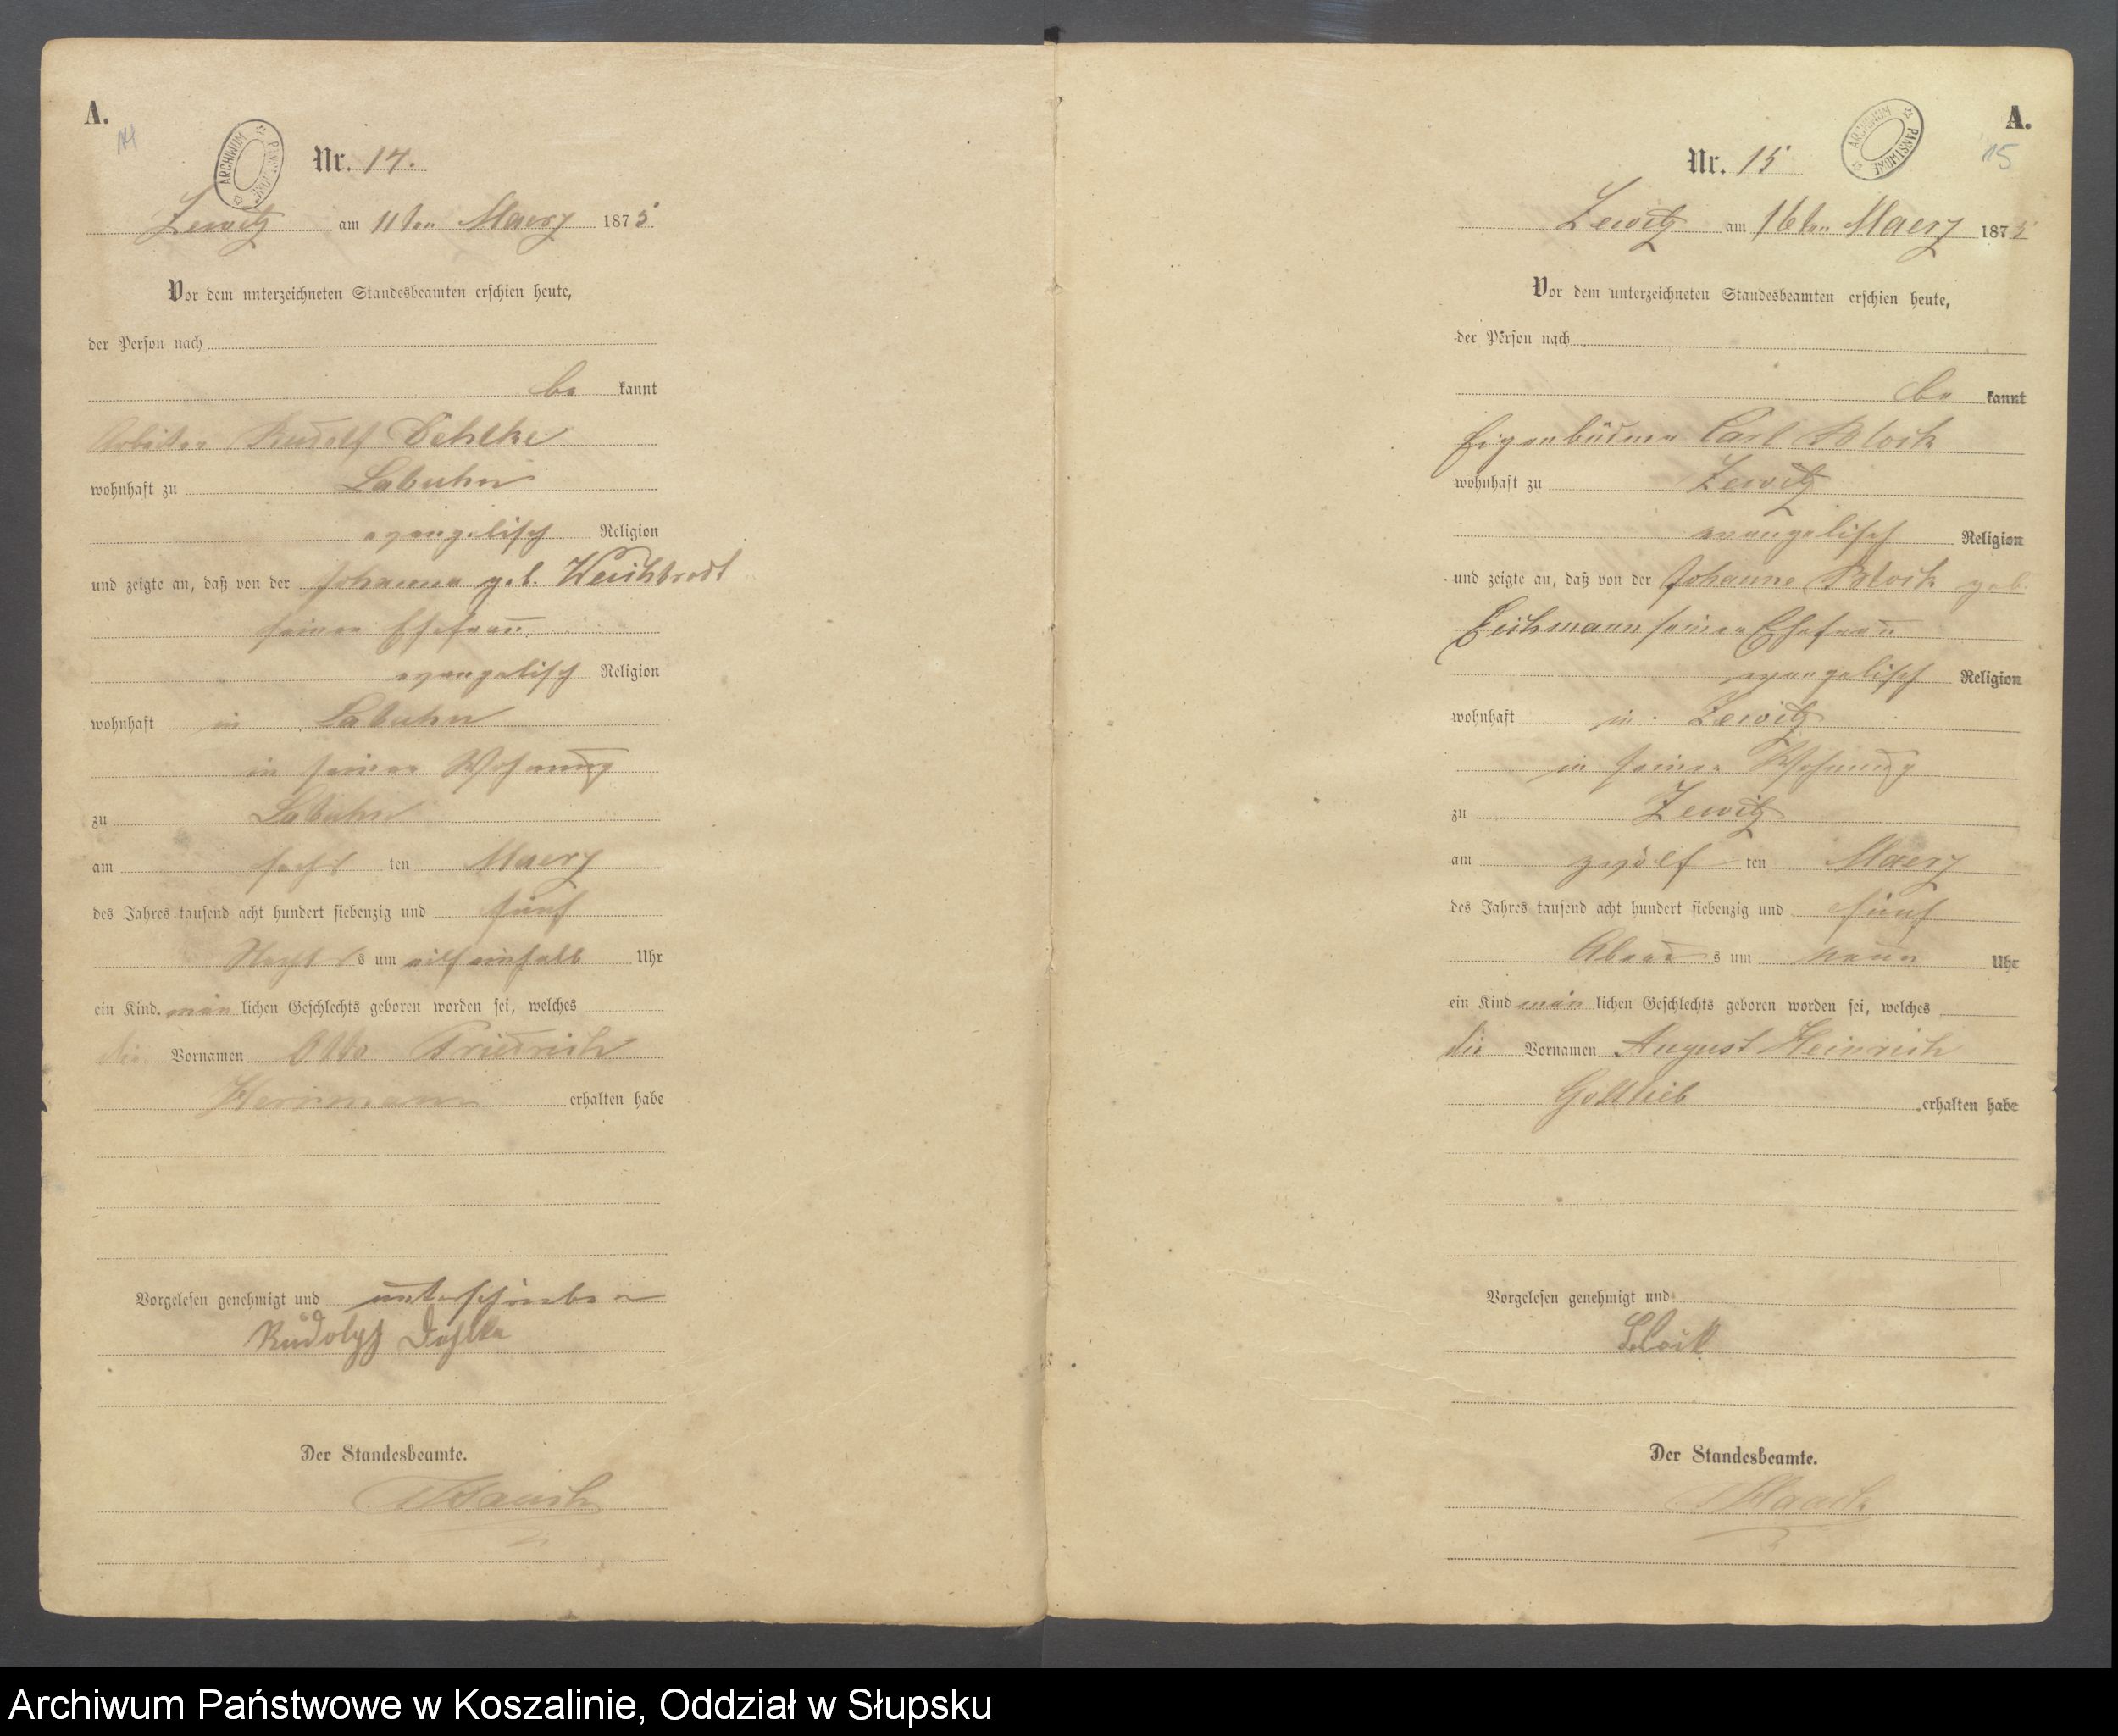 A.
14
ARCHIWUM PAŃSTWOWE
Nr. 14.
Zewitz am 11ten Maerz 1875
Vor dem unterzeichneten Standesbeamten erschien heute,
der Person nach
be kannt
Arbeiter Rudolf Dehlke
wohnhaft zu Labuhn
evangelisch Religion
und zeigte an, daß von der Johanna geb. Weichbrodt
seiner Ehefrau
evangelisch Religion
wohnhaft in Labuhn
in seiner Wohnung
zu Labuhn
am sechs ten Maerz
des Jahres tausend acht hundert siebenzig und fünf
Nacht s um Uhr
ein Kind män lichen Geschlechts geboren worden sei, welches
die Vornamen Otto Friedrich
Herrmann erhalten habe
Vorgelesen genehmigt und unterschrieben
Rudolph Dehlke
Der Standesbeamte.
A.
15
ARCHIWUM PAŃSTWOWE
Nr. 15
Zewitz am 16ten Maerz 1875
Vor dem unterzeichneten Standesbeamten erschien heute,
der Person nach
be kannt
Eigenbüdner Carl Block
wohnhaft zu Zewitz
evangelisch Religion
und zeigte an, daß von der Johanne Block geb.
Eichmann seiner Ehefrau
evangelisch Religion
wohnhaft in Zewitz
in seiner Wohnung
zu Zewitz
am zwölf ten Maerz
des Jahres tausend acht hundert siebenzig und fünf
Abend s um neun Uhr
ein Kind män lichen Geschlechts geboren worden sei, welches
die Vornamen August Heinrich
Gottlieb erhalten habe
Vorgelesen genehmigt und
Block
Der Standesbeamte.
Archiwum Państwowe w Koszalinie, Oddział w Słupsku